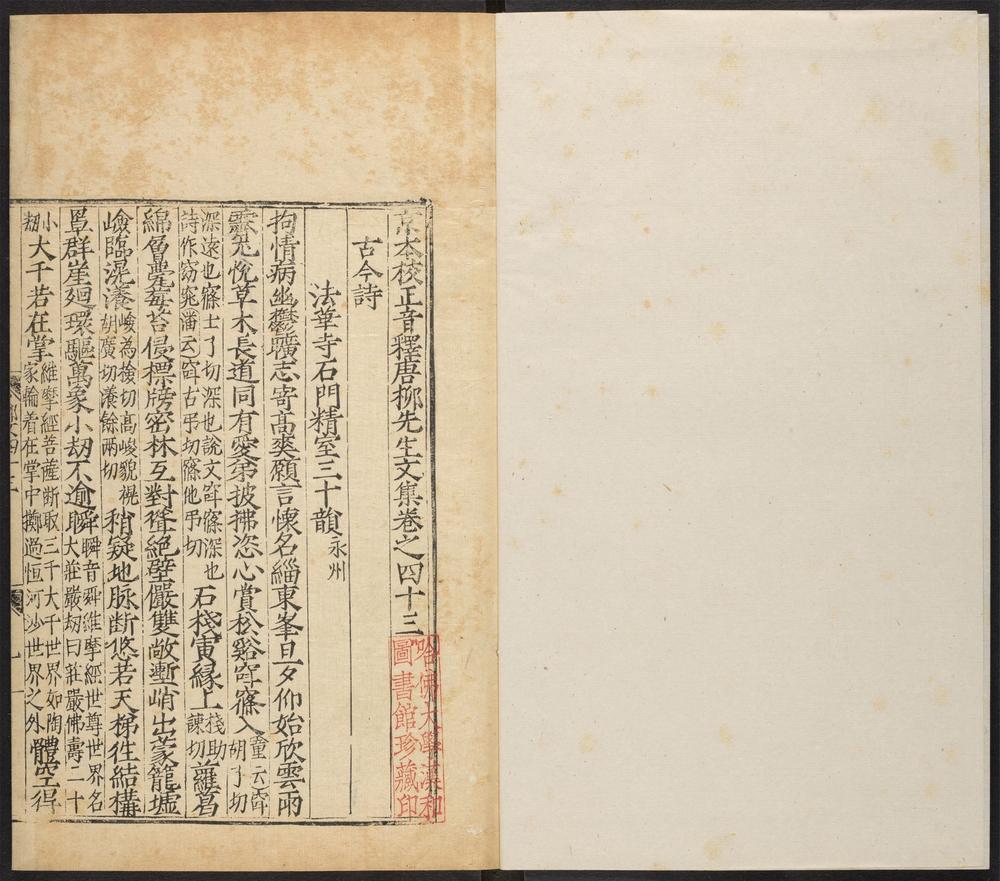 京本校正音釋唐柳先生文集卷之四十三
古今詩
法華寺石門精室三十韻永州
拘情病幽鬱曠志寄高爽願言懷名緇東峯旦夕仰始欣雲雨
霽尤悅草木長道同有愛弟披拂恣心賞松谿窅窱入童云窅胡了切
深遠也窱士了切深也說文窅窱深也詩作窈窕潘云窅古弔切窱他弔切石棧夤緣上棧助諫切蘿葛
綿層甍莓苔侵標牓密林互對聳絕壁儼雙敞塹峭出蒙籠墟
嶮臨滉瀁嶮為檢切高峻貌滉胡廣切瀁餘兩切稍疑地脉斷悠若天梯往結構
罩群崖廻環驅萬象小劫不逾瞬瞬音舜維摩經世尊世界名大莊嚴劫曰莊嚴佛壽二十
小劫大千若在掌維摩經菩薩斷取三千大千世界如陶家輪着在掌中擲過恒河沙世界之外體空得
哈佛大學漢和
圖書館珍藏印